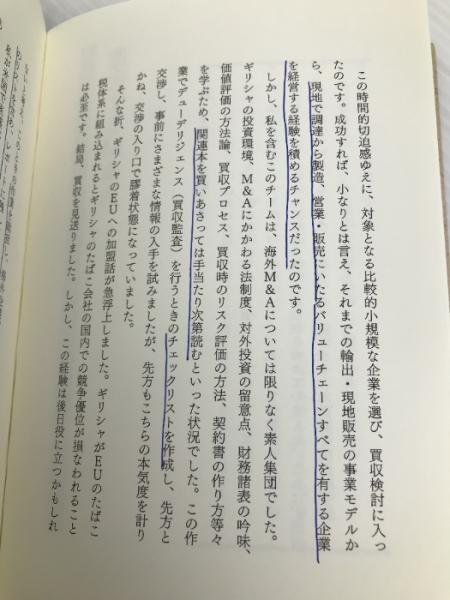 この時間的切迫感ゆえに、対象となる比較的小規模な企業を選び、買収検討に入っ
たのです。成功すれば、小なりとは言え、それまでの輸出・現地販売の事業モデルか
ら、現地で調達から製造、営業・販売にいたるバリューチェーンすべてを有する企業
を経営する経験を積めるチャンスだったのです。
しかし、私を含むこのチームは、海外M&Aについては限りなく素人集団でした。
ギリシャの投資環境、M&Aにかかわる法制度、対外投資の留意点、財務諸表の吟味、
価値評価の方法論、買収プロセス、買収時のリスク評価の方法、契約書の作り方等々
を学ぶため、関連本を買いあさっては手当たり次第読むといった状況でした。この作
業でデューデリジェンス（買収監査）を行うときのチェックリストを作成し、先方と
交渉し、事前にさまざまな情報の入手を試みましたが、先方もこちらの本気度を計り
かね、交渉の入り口で膠着状態になっていました。
そんな折、ギリシャのEUへの加盟話が急浮上しました。ギリシャがEUのたばこ
税体系に組み込まれるとギリシャのたばこ会社の国内での競争優位が損なわれること
は必至です。結局、買収を見送りました。しかし、この経験は後日役に立つかもしれ